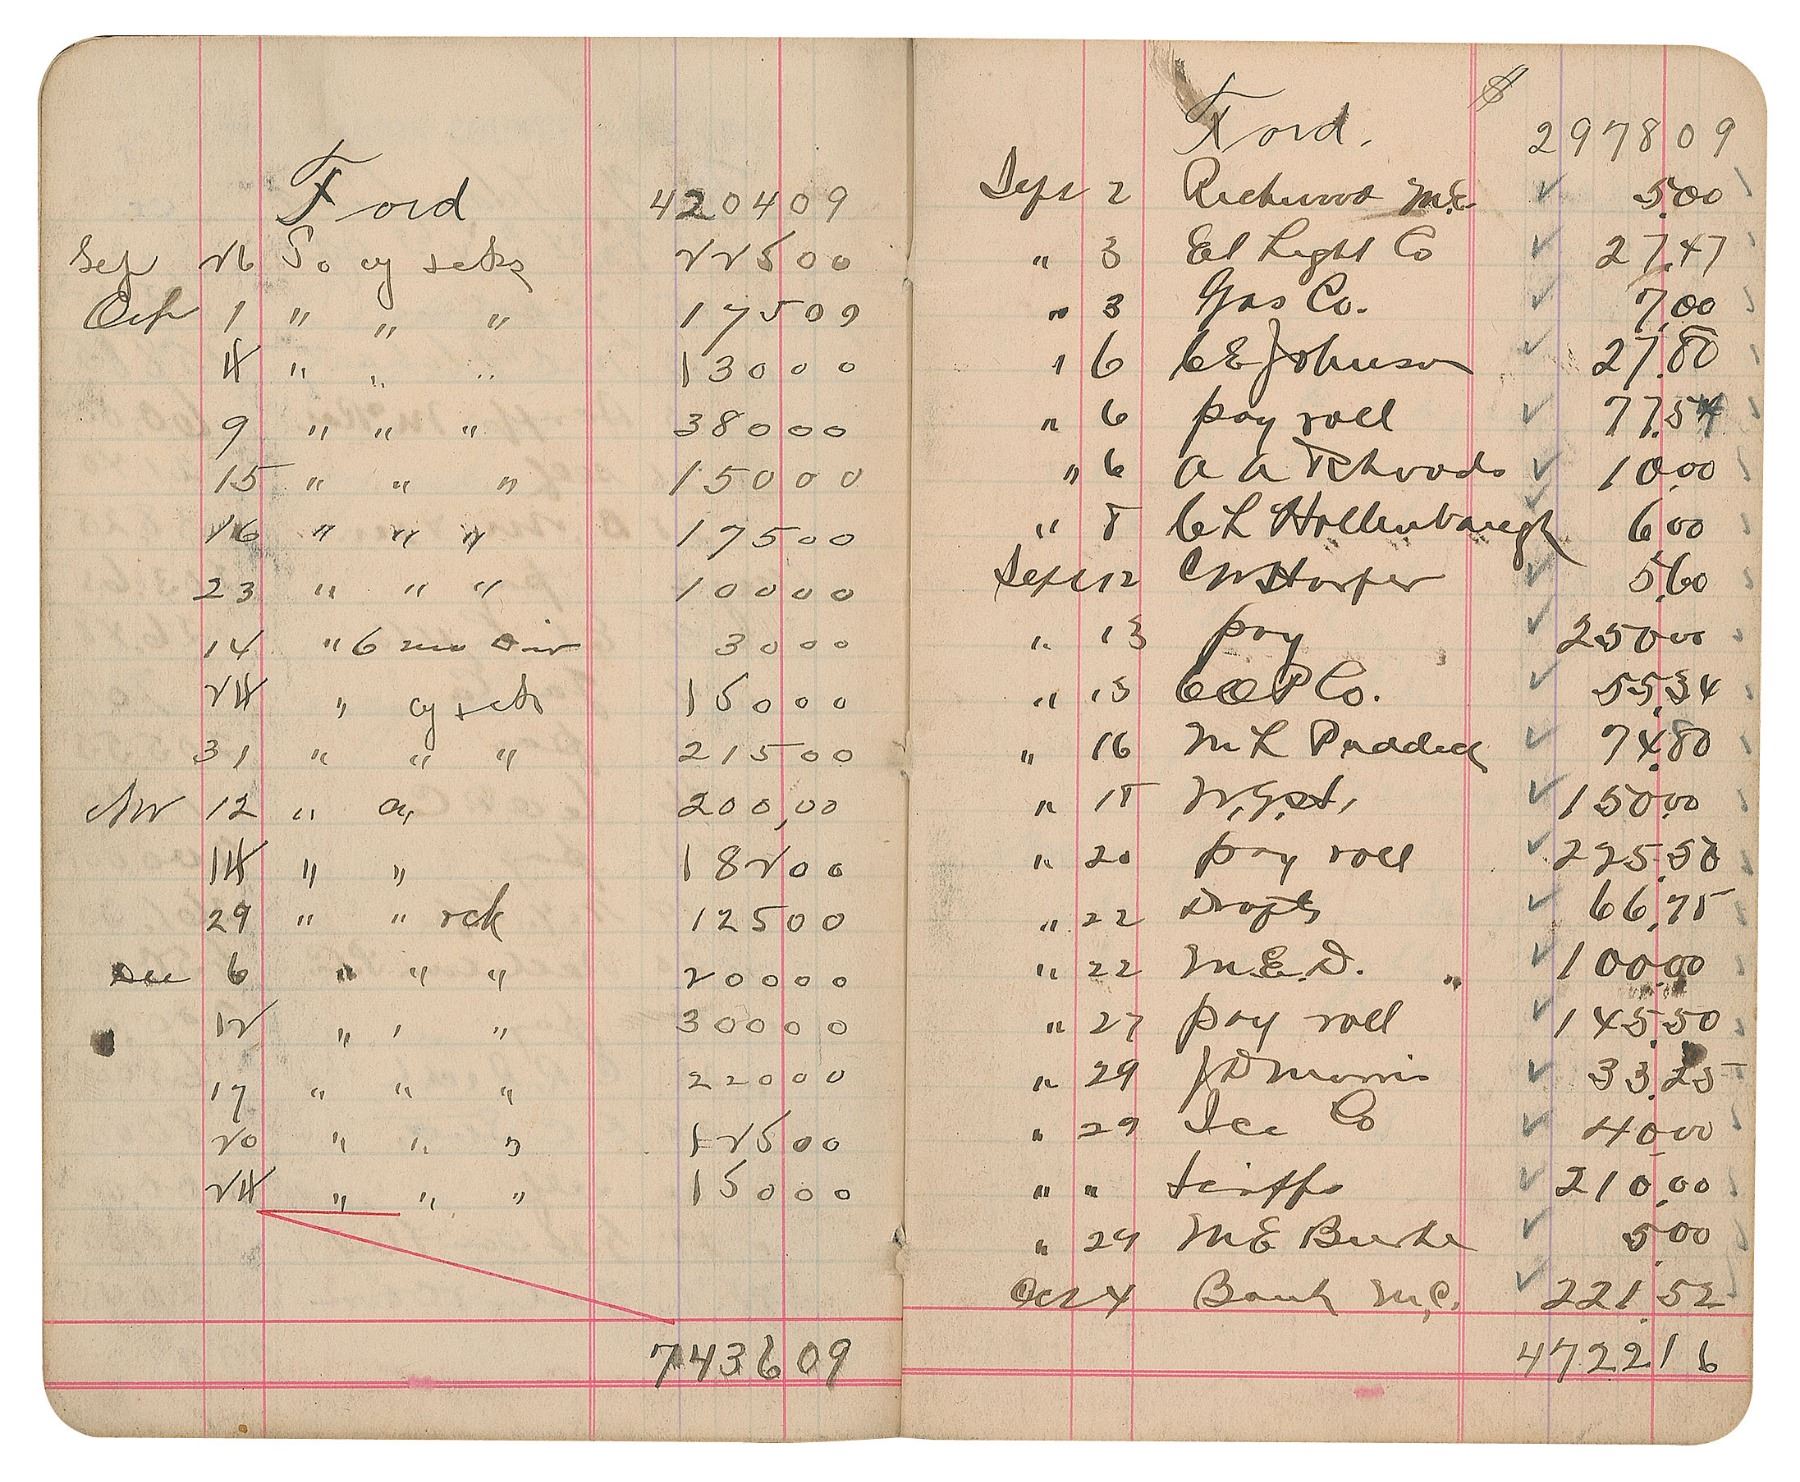 Ford 4204 09
Sep 26 To cg scks 225 00
Oct 1 " " " 175 09
4 " " " 130 00
9 " " " 380 00
15 " " " 150 00
16 " " " 175 00
23 " " " 100 00
14 " 6 mo Div 30 00
24 " cg scks 150 00
31 " " " 215 00
Nov 12 " cg 200,00
14 " " 182 00
29 " " rck 125 00
Dec 6 " " " 200 00
12 " " " 300 00
17 " " " 220 00
20 " " " 125 00
24 " " " 150 00
7436 09
$
Ford. 2978 09
Sept 2 Richwood M.C. ✓ 5.00
" 3 El Light Co ✓ 27.47
" 3 Gas Co. ✓ 7.00
" 6 C E Johnson ✓ 27.80
" 6 pay roll ✓ 77.54
" 6 A A Rhoads ✓ 10.00
" 8 C L Hollenbaugh ✓ 6 00
Sept 12 C W Harper ✓ 5.60
" 13 pay ✓ 250 00
" 15 C O P Co. ✓ 55.34
" 16 M L Paddock ✓ 74.80
" 18 ✓ 150.00
" 20 pay roll ✓ 225.50
" 22 Drafts ✓ 66.75
" 22 M.E.D. " ✓ 1000.00
" 27 pay roll ✓ 145.50
" 29 J D Morris ✓ 33.25
" 29 Ice Co ✓ 40 00
" " ✓ 210.00
" 29 M E Burke ✓ 5 00
Oct 4 Bank M.C. ✓ 221.52
4722 16